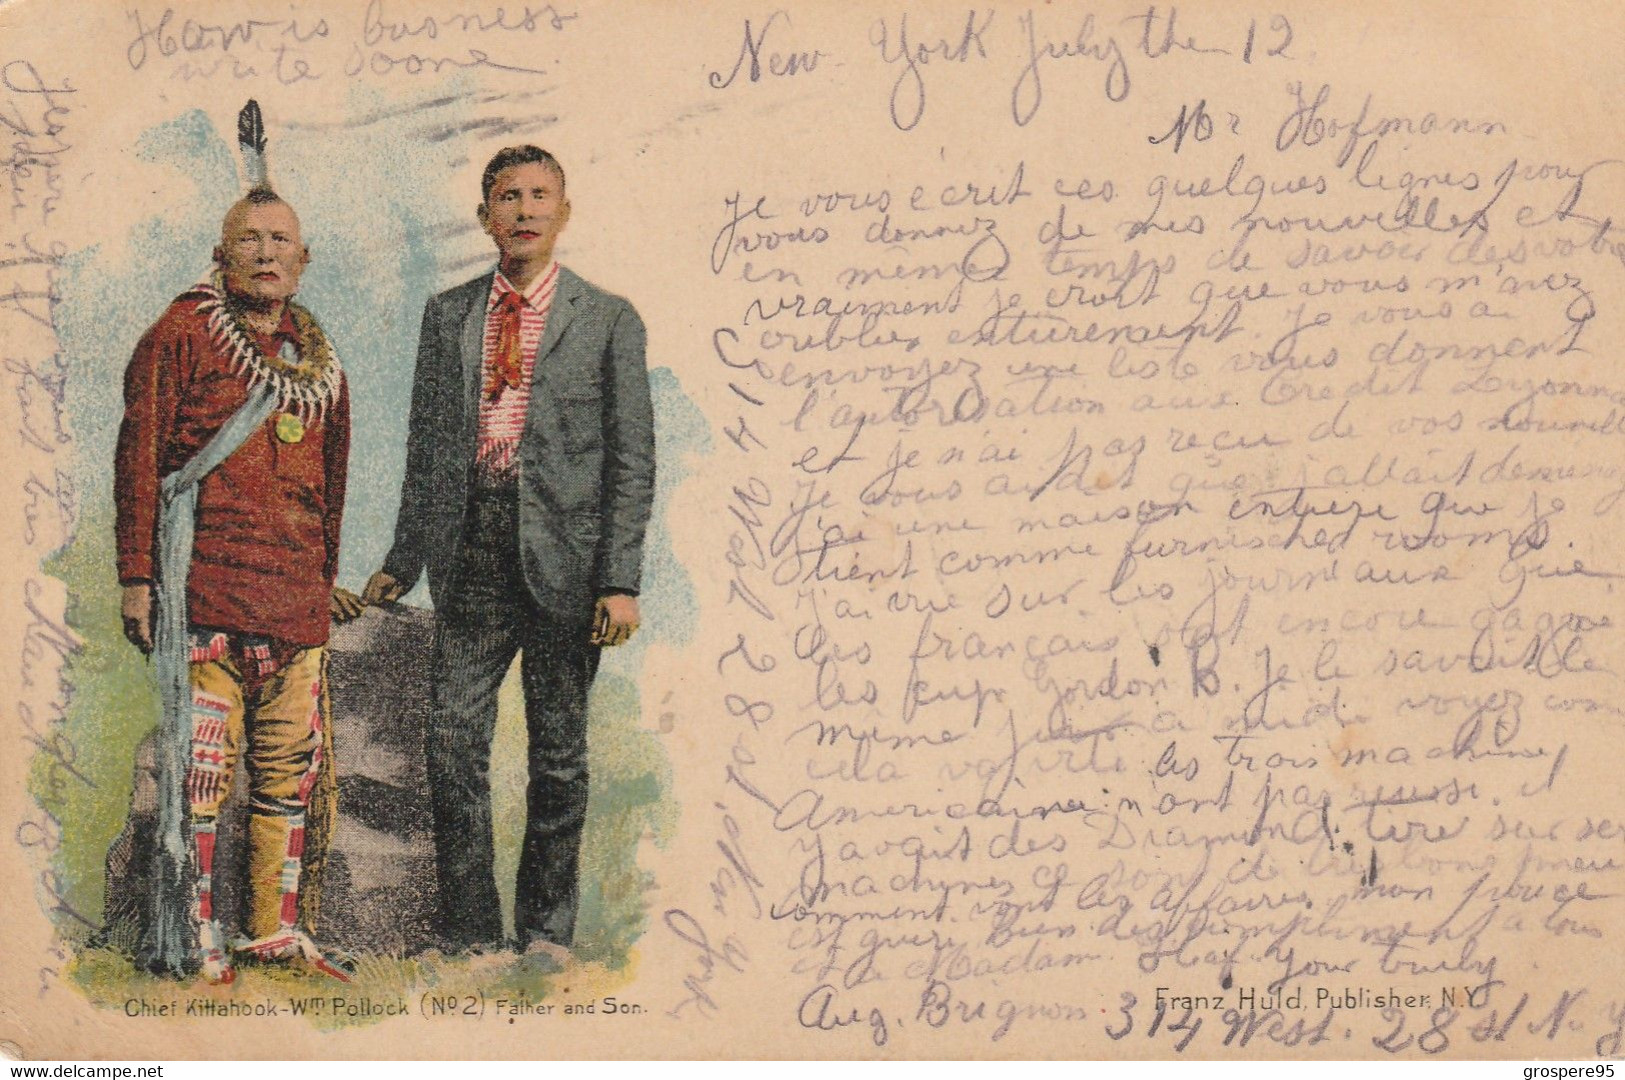 How is busness
write soone
New York July the 12
Mr Hofmann
Je vous écrit ces quelques lignes pour
vous donnez de mes nouvelles et
en même temps de savoir des votre
vraiment je croit que vous m'avez
oublier entièrement. Je vous ai
envoyez une liste vous donnent
l'autorisation aux Credit Lyonna
et je n'ai pas recu de vos nouvelle
Je vous ai dit que j'allait
j'ai une maison entiere que je
tient comme furnisched rooms.
J'ai vue sur les journeaux que
les français ont encore gagné
les cup Gordon B. Je le savait le
même jour a midi voyez com
cela va vite les trois machines
Americaine n'ont pas reussi. il
y avait des Diamond tire sur ser
machynes ce sont de bons pneu
comment vont les affaires mon pouce
est gueri Bien des compliment a tous
et a Madam Your truly
Aug. Brignon 314 West. 28 st N. Y
314 West 28 st. New York
J'espère que vous
fait tres chaud
Chief Kittahook-Wm Pollock (No 2) Father and Son.
Franz Huld, Publisher, N.Y.
grospere95